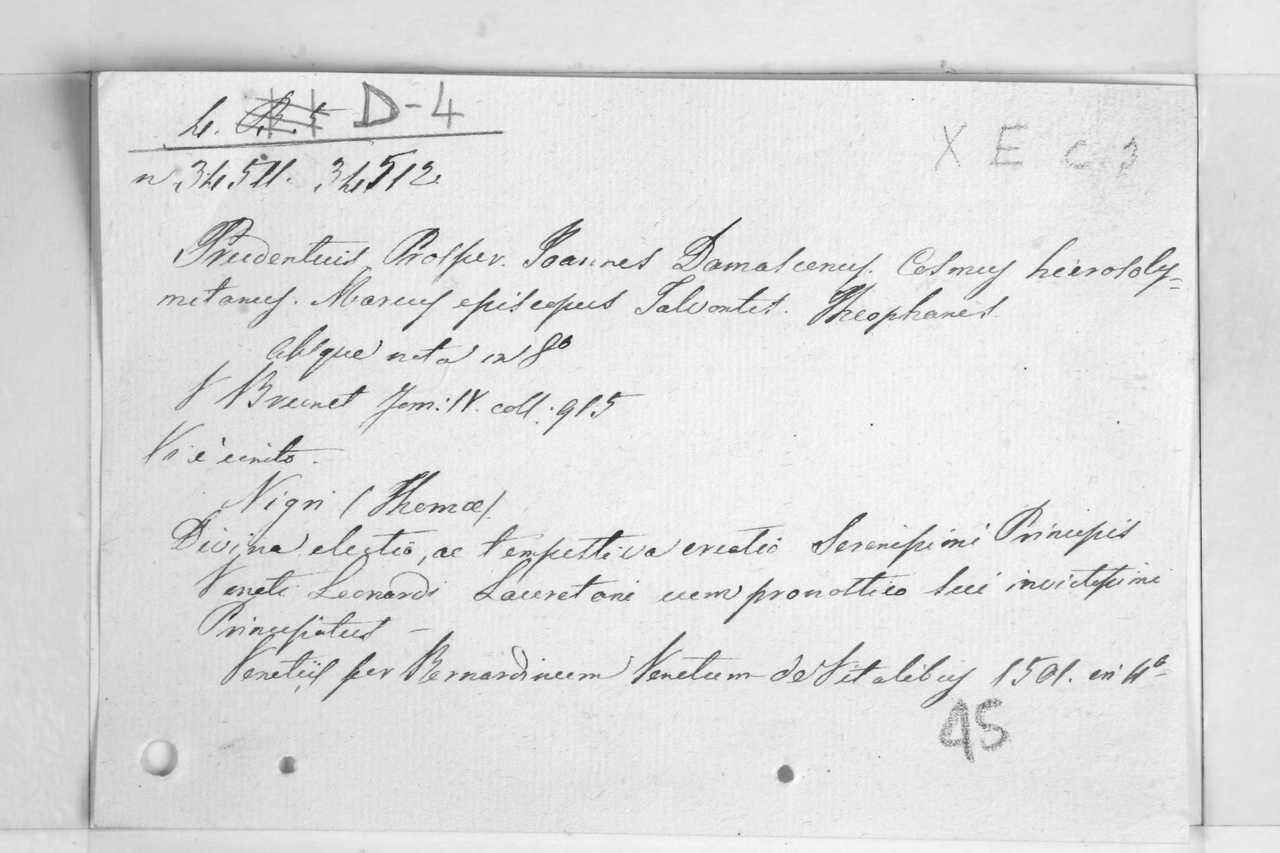 L. D-4
X E C 3
n. 34511. 34512
Prudentius Prosper. Joannes Damascenus. Cosmus hierosoly=
mitanus. Marcus episcopus Talvontis. Theophanes.
absque nota in 8º
V Brunet Tom: IV. coll: 915
Vi è unito.
Nigri (Thomæ)
Divina electio, ac tempestiva creatio Serenissimi Principis
Veneti Leonardi Lauretani cum pronostico sui invictissimi
Principatus -
Venetiis per Bernardinum Venetum de Vitalibus 1501. in 4º
45